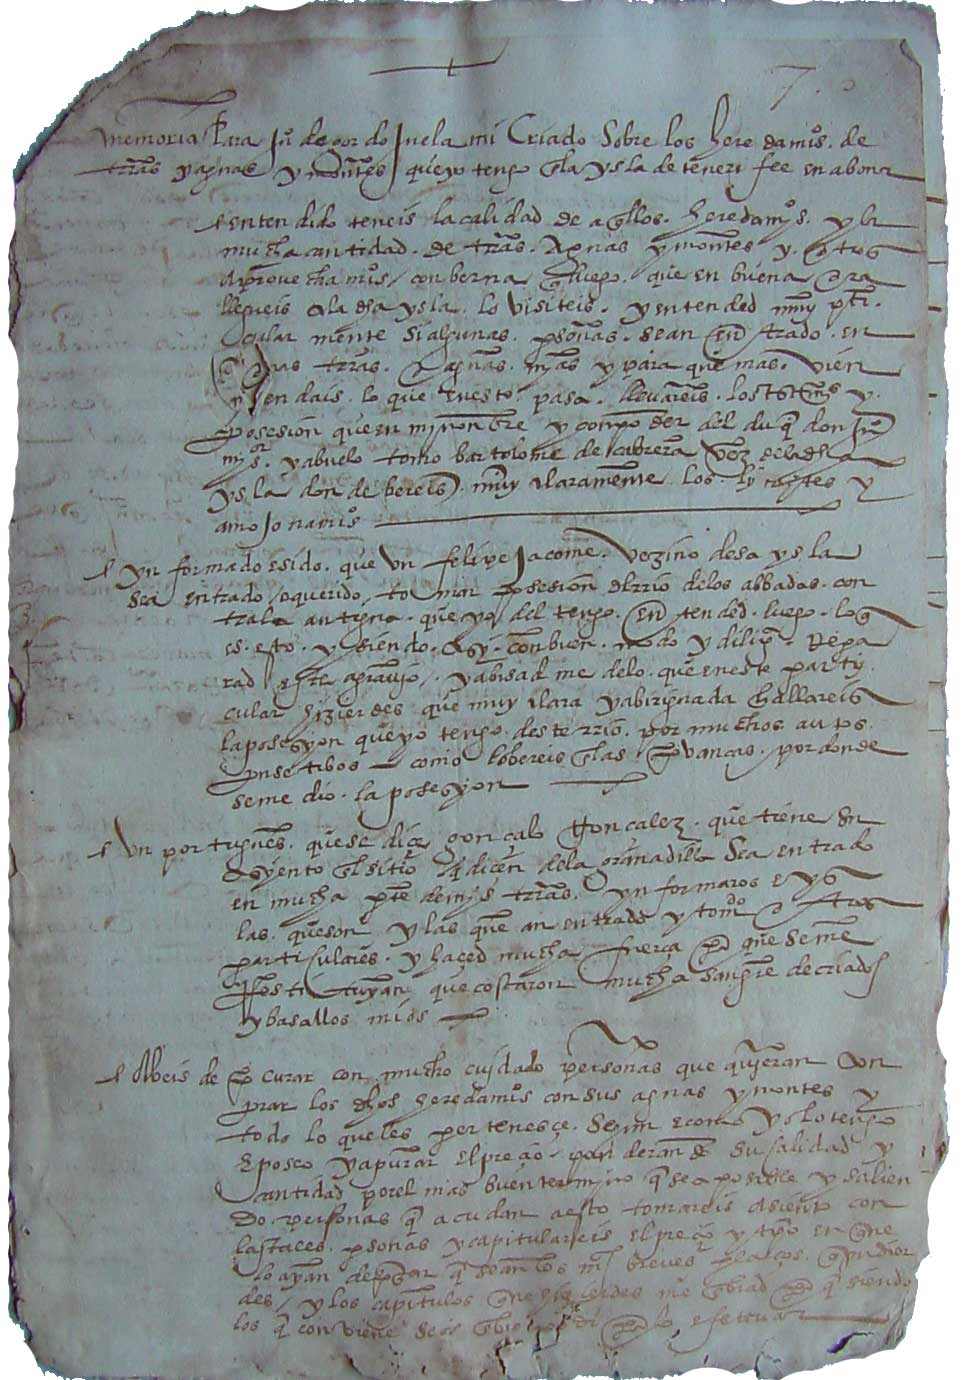 7
memoria Para Ju° de gordojuela mi Criado Sobre los heredamios. de
trras y aguas y montes que yo tengo En la ysla de tenerifee en abona
entendido teneis la calidad de aqllos. heredamos. y la
mucha cantidad. de trras. Aguas y montes y. otros
Aprovechamios / converna q luego. que en buena ora
llegueis a la dha ysla. lo visiteis. y entended muy parti
cularmente si algunas. psonas. sean entrado. en
trras. o aguas. mias y para que mas. vien
entendais. lo que en esto pasa. llevareis. los testimos y.
posesion que en mi nombre y con poder del duq don Ju°
mi sor. y abuelo tomo bartolome de cabrera Vz° de la dha
ysla donde bereis. muy claramente. los limites y
amojonamios
ynformado e sido. que un felipe Jacome. Vezino desa ysla
sea entrado / o querido. tomar posesion del rrio de los abbades. con
tra la antigua. que yo del tengo. Entended. luego. lo q
es. esto. y siendo. asy. con buen. modo y dilig°. Repa
rad este agravio /. y abisadme de lo. que en este party
cular hizierdes que muy clara y abiriguada hallareis
la posesyon que yo tengo. deste rrio. por muchos autos.
como lo bereis en las provanças. por donde
se me dio. la posesyon
Un portugues. que se dize gonçalo Gonçalez. que tiene Su
asyento En el sitio q dicen de la granadilla Sea entrado
en mucha pte de mys trras. ynformaros eys
las. que son y las que an entrado y tomdo otros
particulares. y haced mucha fuerça pa que se me
Restituyan que costaron mucha sangre de criados
y basallos mios
Abeis de procurar con mucho cuydado personas que quyeran Con
prar los dhos heredamios con sus aguas y montes y
todo lo que les pertenesçe. Segun e como yo lo tengo
E poseo y apurar el preçio ponderando Su calidad y
cantidad por el mas buen termino q sea posible y salien
do personas q acudan a esto tomareis asiento con
las tales. psonas y capitulareis el preçio y tpo en que
lo ayan de pagar q sean los mas breves plaços. que pudier
des / y los capitulos que hizierdes me enbiad pa q siendo
los q conviene se os enbie poder pa lo efettuar